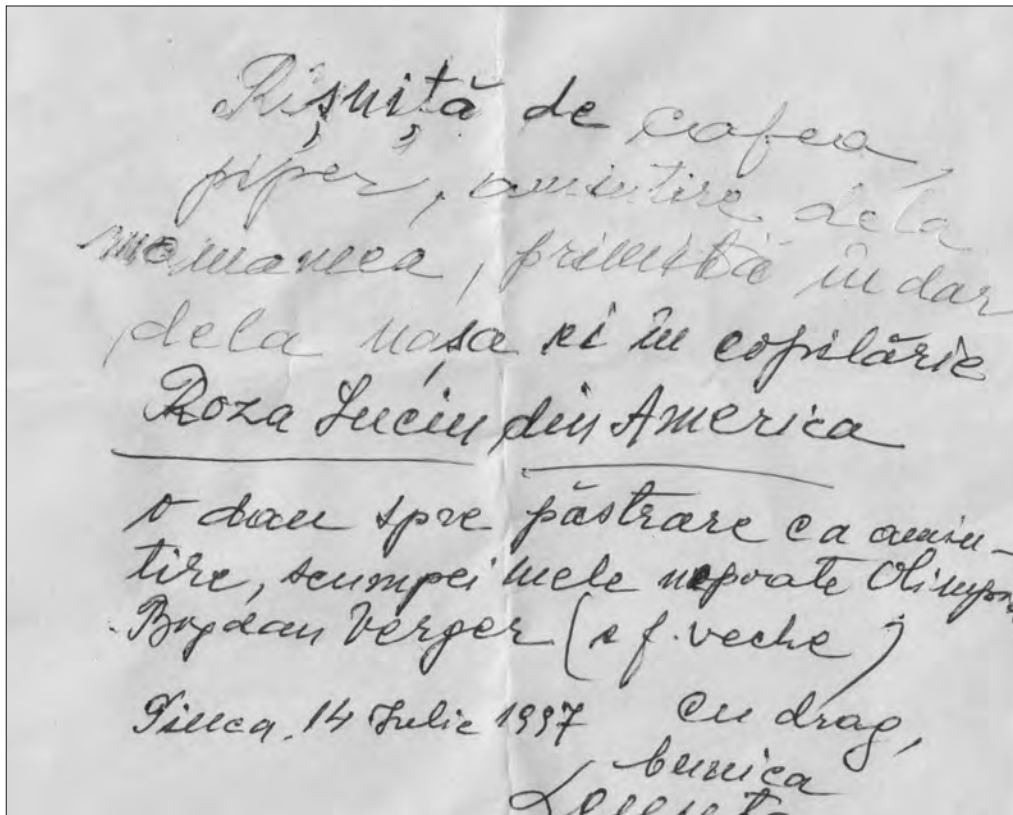 Rîșniță de cafea,
piper, amintire dela
mamamea, primită în dar
dela nașa ei în copilărie
Roza Suciu din America
o dau spre păstrare ca amin-
tire, scumpei mele nepoate Olimpia
Bogdan Verger (e f. veche)
Tinca, 14 Iulie 1997 cu drag,
bunica